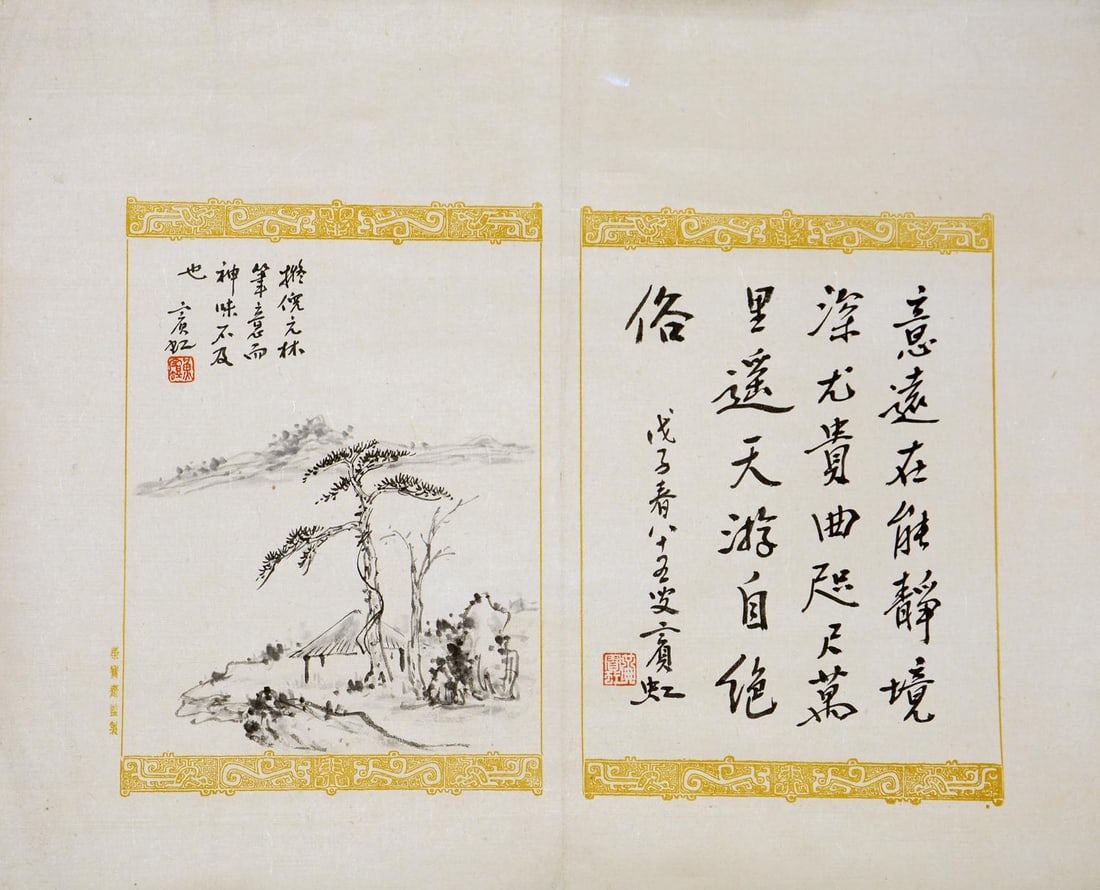 意遠在能靜境
深尤貴曲咫尺萬
里遥天游自絶
俗
戊子春八十五叟賓虹
擬倪云林
筆意而
神味不及
也 賓虹
榮寶齋監製